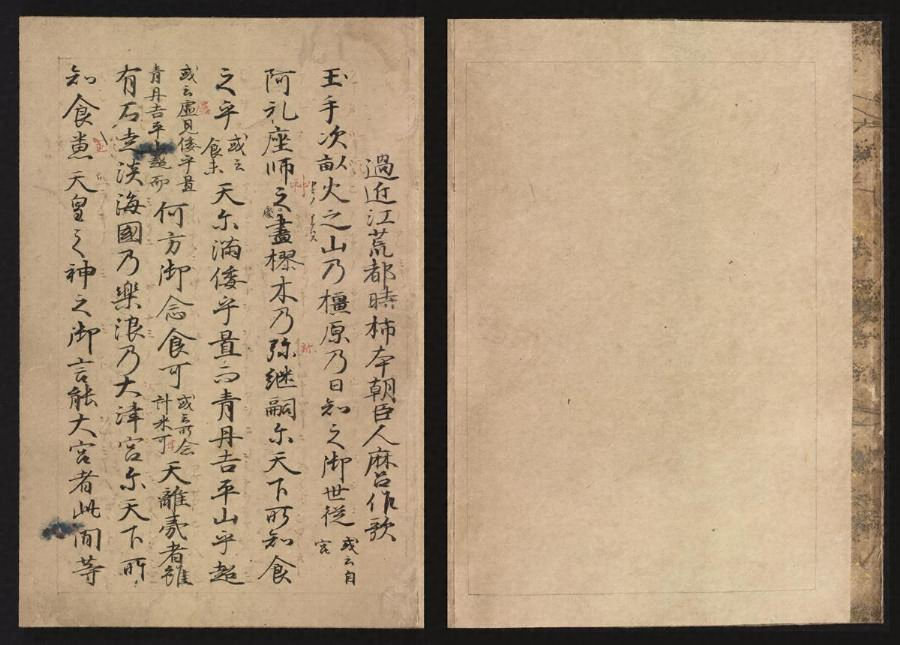 過近江荒都時柿本朝臣人麻呂作歌
玉手次畝火之山乃橿原乃日知之御世従 或云自
宮
阿礼座師之盡樛木乃弥継嗣尓天下所知食
神
之乎 或云
食来 天尓満倭乎置而青丹吉平山乎超
或云虚見倭乎置
青丹吉平山越而 何方御念食可 或云所念
計米可 天離夷者雖
有石走淡海國乃楽浪乃大津宮尓天下所
知食兼天皇之神之御言能大宮者此間等